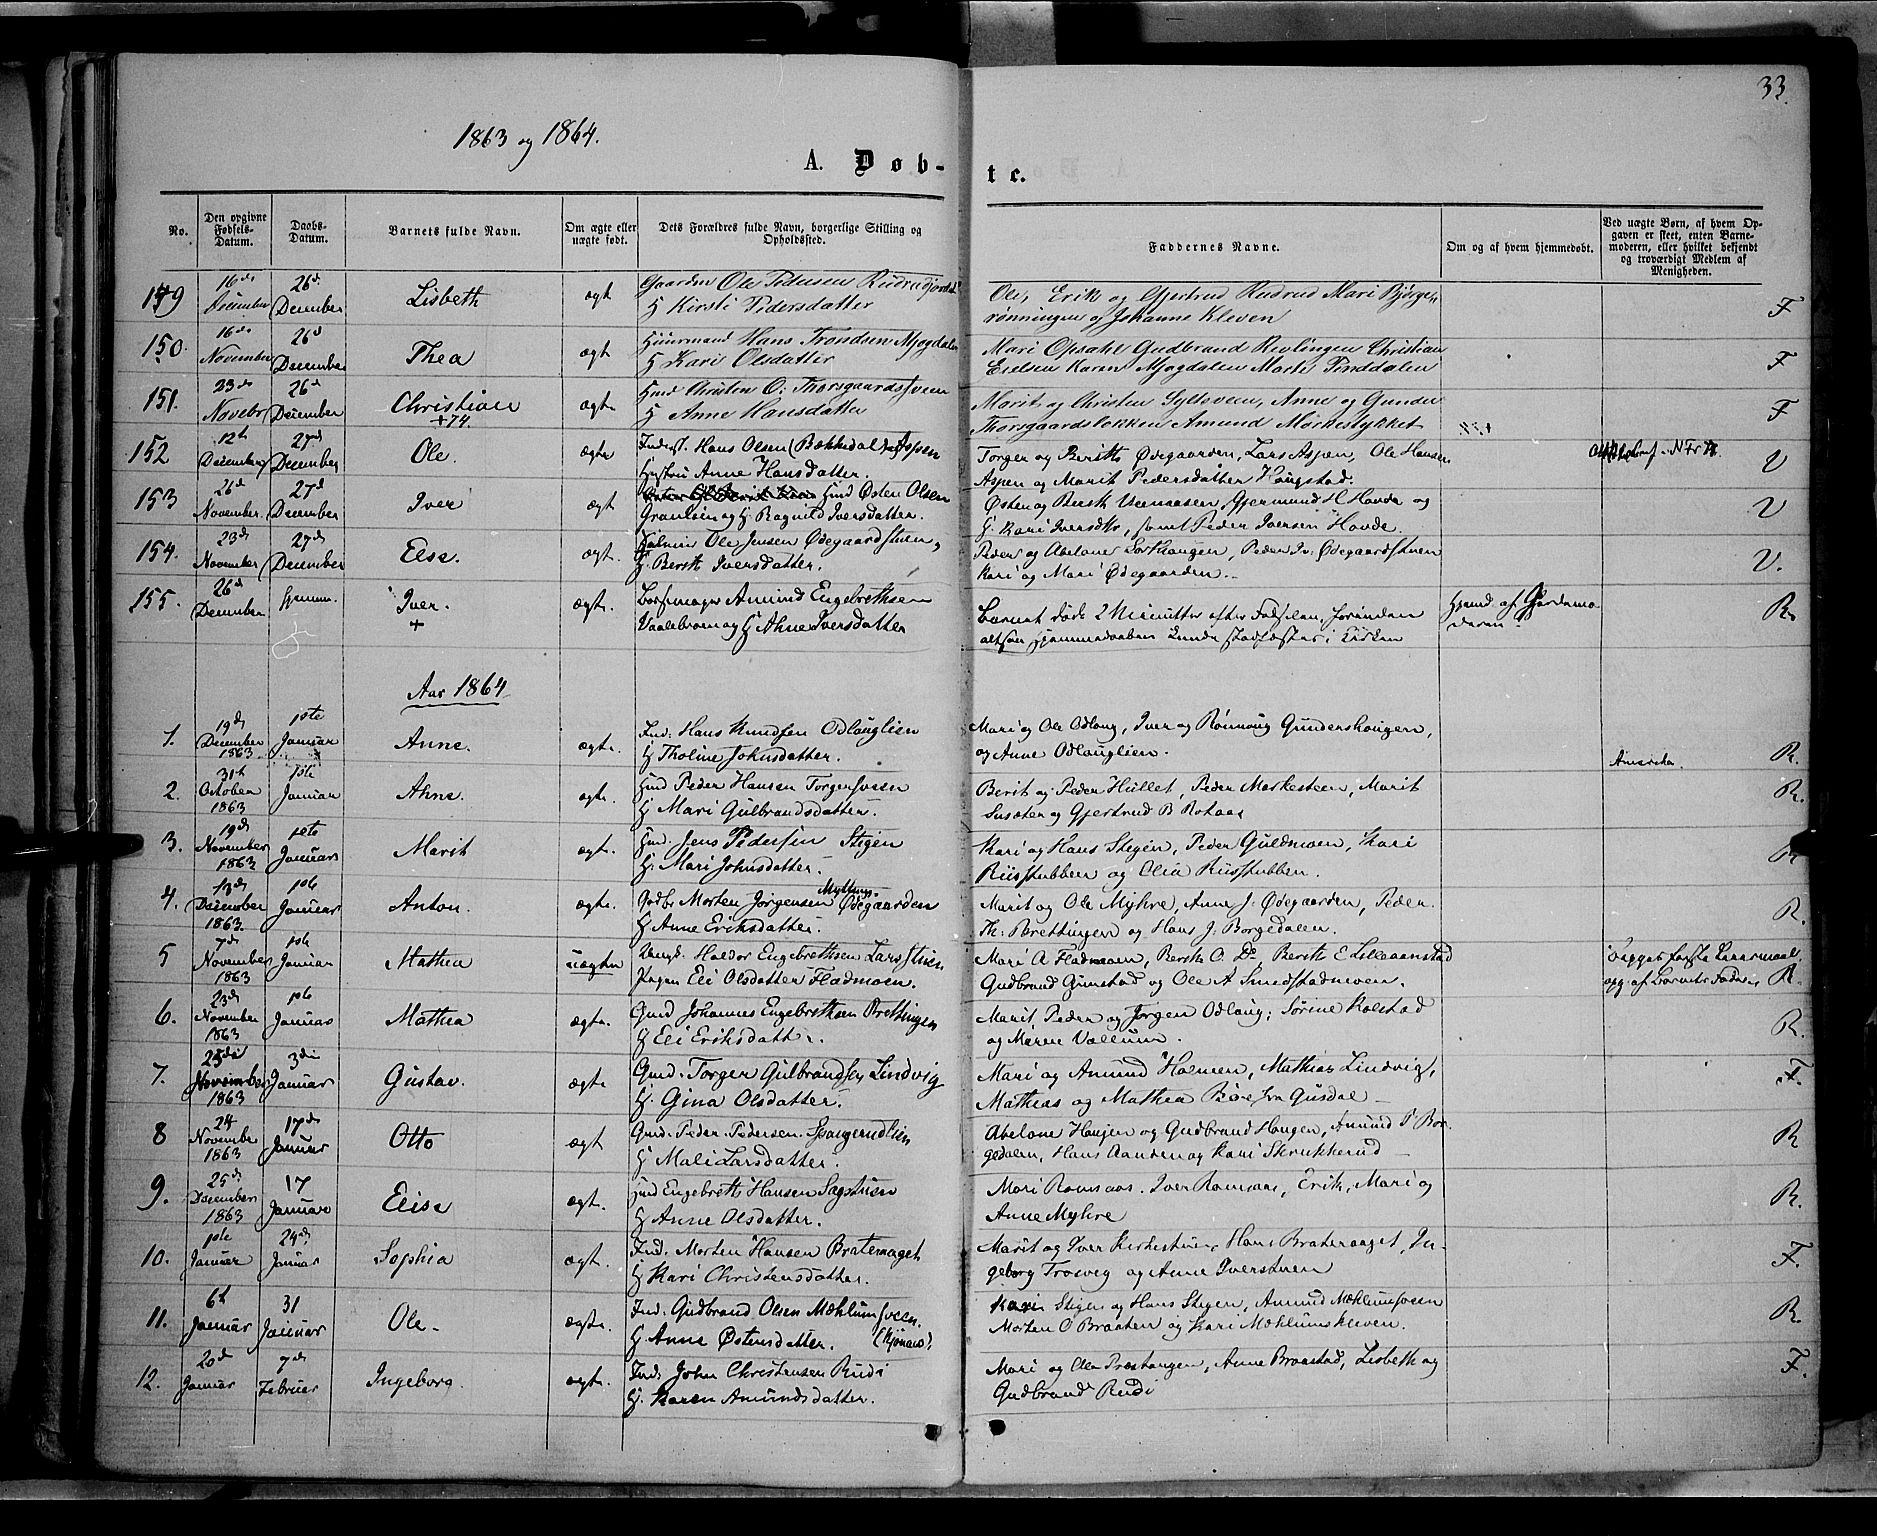 33.
1863 og 1864.
A. Døb-
te.
No.
Den opgivne Fødsels-Datum.
Daabs-Datum.
Barnets fulde Navn.
Om ægte eller uægte født.
Dets Forældres fulde Navn, borgerlige Stilling og Opholdssted.
Faddernes Navne.
Om og af hvem hjemmedøbt.
Ved uægte Børn, af hvem Opgaven er skeet, enten Barnemoderen, eller hvilket bekjendt og troværdigt Medlem af Menigheden.
149 16de December 26de December Lisbeth ægt Gaardm Ole Pedersen
H Kirsti Pedersdatter
Ole, Erik og Gjertrud Rudrud Mari Bjørge-
rønningen og Johanne Kleven F
150. 16de November 26d December Thea ægt Huusmand Hans Trondsen Mogdalen
H Kari Olsdatter
Mari Opsahl Gudbrand Christian
Karen Mogdalen Marte F
151. 23de Novebr 26d December Christian +74. ægte Hmd Christen O: Thorsgaardssveen
H Anne Hansdatter
Marit og Christen Syltsveen, Anne og Gunder
Thorsgaardslokken Amund Mørkestykket F
152 12te December 27d December Ole. ægte Hans Olsen (Bækkedal) Aspen
Hustru Anne Hansdatter.
Torger og Beritte Ødegaarden, Lars Aspen, Ole Hansen
Aspen og Marit Pedersdatter Haugstad. V
153 26d November. 27d December Iver ægt Hmd Østen Olsen
og H. Ragnild Iversdatter.
Østen og Berit Gjermund H Hovde og
H. Kari Iversdtr, samt Peder Iversen Hovde. V
154. 23d November 27de December Else. ægt. Ole Jensen Ødegaardstuen,
H. Berit Iversdatter.
Peder og Abelone Peder Iv: Ødegaardstuen
Kari og Mari Ødegaarden. V.
155. 26d December hjemm. Iver. + ægte. Amund Engebrethsen
og H Ahne Iversdatter
Barnet døde 2 Minutter efter Fødselen, forinden
altsaa Hjemmedaaben kunde stadfæstes i Kirken
Hjemd. af Jordemo
deren R.
Aar 1864
1. 19d December 1863. 1ste Januar Anne. ægte. Ind. Hans Knudsen Odlauglien
H Tholine Johnsdatter.
Mari og Ole Odlaug, Iver og Rønnaug Gundershaugen,
og Anne Odlauglien. R.
Amerika.
2. 31te October 1863 1ste Januar Ahne. ægte. Hmd Peder Hansen Torgersveen
H Mari Gulbrandsdatter.
Berit og Peder Hullet, Peder Mørkesteen, Marit
og Gjertrud B R.
3. 19d November 1863 1ste Januar Marit ægte. Hmd. Jens Pedersen Stigen
H. Mari Johnsdatter.
Kari og Hans Stigen, Peder Guldmoen, Kari
Riisstubben og Olia Riisstubben. R
4. 13de December 1863. 1ste Januar Anton. ægte. Morten Jørgensen Ødegaarden
H Anne Eriksdatter.
Marit og Ole Myhre, Anne J: Ødegaarden, Peder
Th: Brettingen og Hans J: Borgedalen. R.
5 7de November 1863 1ste Januar Mathea uægte Ungk. Haldor Engebrethsen Larsstuen
Pigen Eli Olsdatter Fladmoen.
Mari A Fladmoen, Berit O. Do Berit E
Gudbrand og Ole A
opg. af Barnets Fader, R.
6. 23de November 1863 1ste Januar Mathea ægte. Gmd Johannes Engebrethsen Brettingen
H Eli Eriksdatter.
Marit, Peder og Jørgen Odlaug; Sørine Kolstad
og Maren Vollum. R
7. 25de November 1863 3die Januar Gustav. ægte Gmd. Torger Gulbrandsen Lindvig
H. Gina Olsdatter.
Mari og Amund Holmen, Mathias Lindvig,
Mathias og Mathea fra Gusdal F.
8 24 November 1863 17de Januar Otto ægt. Gmd. Peder Pedersen
H Mali Larsdatter.
Abelone Haugen og Gudbrand Haugen, Amund P Bor-
gedalen, Hans og Kari Skrukkerud R
9. 25de December 1863 17 Januar Elise ægte. Hmd Engebreth Hansen Sagstuen
H Anne Olsdatter.
Mari Romsaas. Iver Romsaas, Erik, Mari og
Anne Myhre R.
10. 1ste Januar 24de Januar Sophia ægte. Ind. Morten Hansen Bratenaget
H Kari Christensdatter.
Marit og Iver Kirkestuen, Hans Bratenaget, In-
geborg og Anne Iverstuen F.
11. 6te Januar 31 Januar Ole ægte. Ind. Gudbrand Olsen Mæhlumsveen.
H Anne Østensdatter.
Kari Stigen og Hans Stigen, Amund Mæhlumsveen
Morten O Braaten og Kari Mæhlumskleven. R.
12. 20de Januar 7de Februar Ingeborg. ægte. Ind. John Christensen Rudi
H. Karen Amundsdatter.
Mari og Ole Præstangen, Anne Braastad, Lisbeth og
Gudbrand Rudi F.